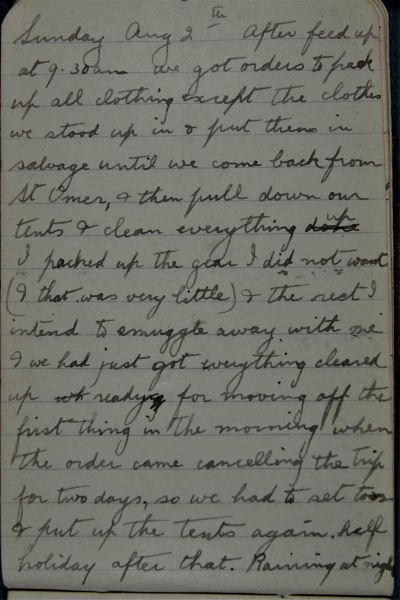 Sunday Aug 2th After feed up
at 9.30am we got orders to pack
up all clothing except the clothes
we stood up in & put them in
salvage until we come back from
St Omer, & then pull down our
tents & clean everything up
I packed up the gear I did not want
(& that was very little) & the rest I
intend to smuggle away with me
& we had just got everything cleared
up ready for moving off the
first thing in the morning when
the order came cancelling the trip
for two days, so we had to set to
& put up the tents again. half
holiday after that. Raining at night